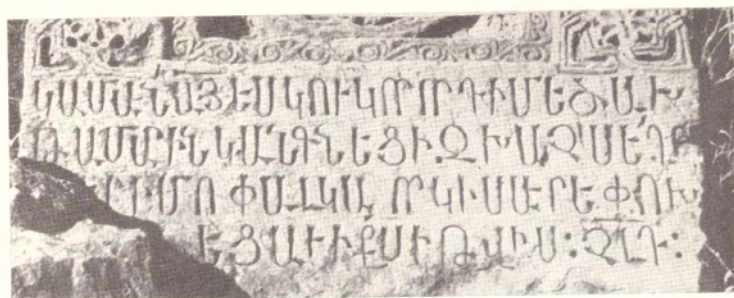 ԿԱՄԱՒՆ ԱՅ ԵՍ ԿՈՒԿՈՐ ՈՐԴԻ ՄԵԾԱԽ
ԹԱՄՐԻՆ ԿԱՆԳՆԵՑԻ ԶԽԱՉՍ ԵՂԲ
ՐԻՄՈ ՓԱԼԿԱ ՈՐ ԿԻՍԱՐԵ ՓՈԽ
ԵՑԱՒ Ի ՔՍԻ ԹՎԻՍ : ՉԼԴ :